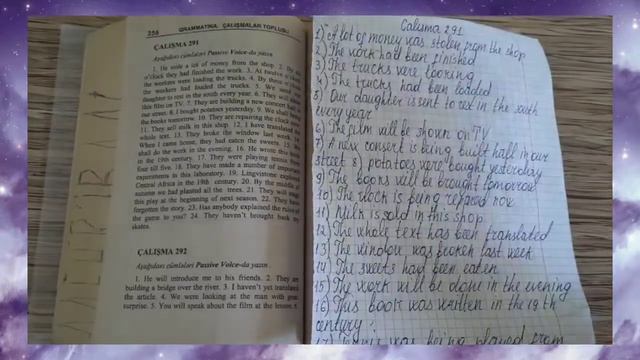 256
GRAMMATİKA. ÇALIŞMALAR TOPLUSU
ÇALIŞMA 291
Aşağıdakı cümlələri Passive Voice-da yazın
1. He stole a lot of money from the shop. 2. By
o'clock they had finished the work. 3. At twelve o'clock
the workers were loading the trucks. 4. By three o'clock
the workers had loaded the trucks. 5. We send our
daughter to rest in the south every year. 6. They will show
this film on TV. 7. They are building a new concert hall in
our street. 8. I bought potatoes yesterday. 9. We shall bring
the books tomorrow. 10. They are repairing the clock now.
11. They sell milk in this shop. 12. I have translated the
whole text. 13. They broke the window last week. 14.
When I came home, they had eaten the sweets. 15. We
shall do the work in the evening. 16. He wrote this book
in the 19th century. 17. They were playing tennis from
four till five. 18. They have made a number of important
experiments in this laboratory. 19. Livingstone explored
Central Africa in the 19th century. 20. By the middle of
autumn we had planted all the trees. 21. They will stage
this play at the beginning of next season. 22. They have
forgotten the story. 23. Has anybody explained the rules of
the game to you? 24. They haven't brought back my
skates.
ÇALIŞMA 292
Aşağıdakı cümlələri Passive Voice-da yazın.
1. He will introduce me to his friends. 2. They are
building a bridge over the river. 3. I haven't yet translated
the article. 4. We were looking at the man with great
surprise. 5. You will speak about the film at the lesson. 6.
Calisma 291
1) A lot of money was stolen from the shop
2) The work had been finished
3) The trucks were looring
4) The trucks had been loaded
5) Our daughter is sent to rest in the south
every year
6) The film will be shown on TV
7) A new consert is being built hall in our
street 8) potatoes were bought yesterday
9) The books will be brought tomorrow
10) The clock is being repaired now
11) Milk is sold in this shop
12) The whole text has been translated
13) The window was broken last week
14) The sweets had been eaten
15) The work will be done in the evening
16) This book was written in the 19 th
century
17) was being played from